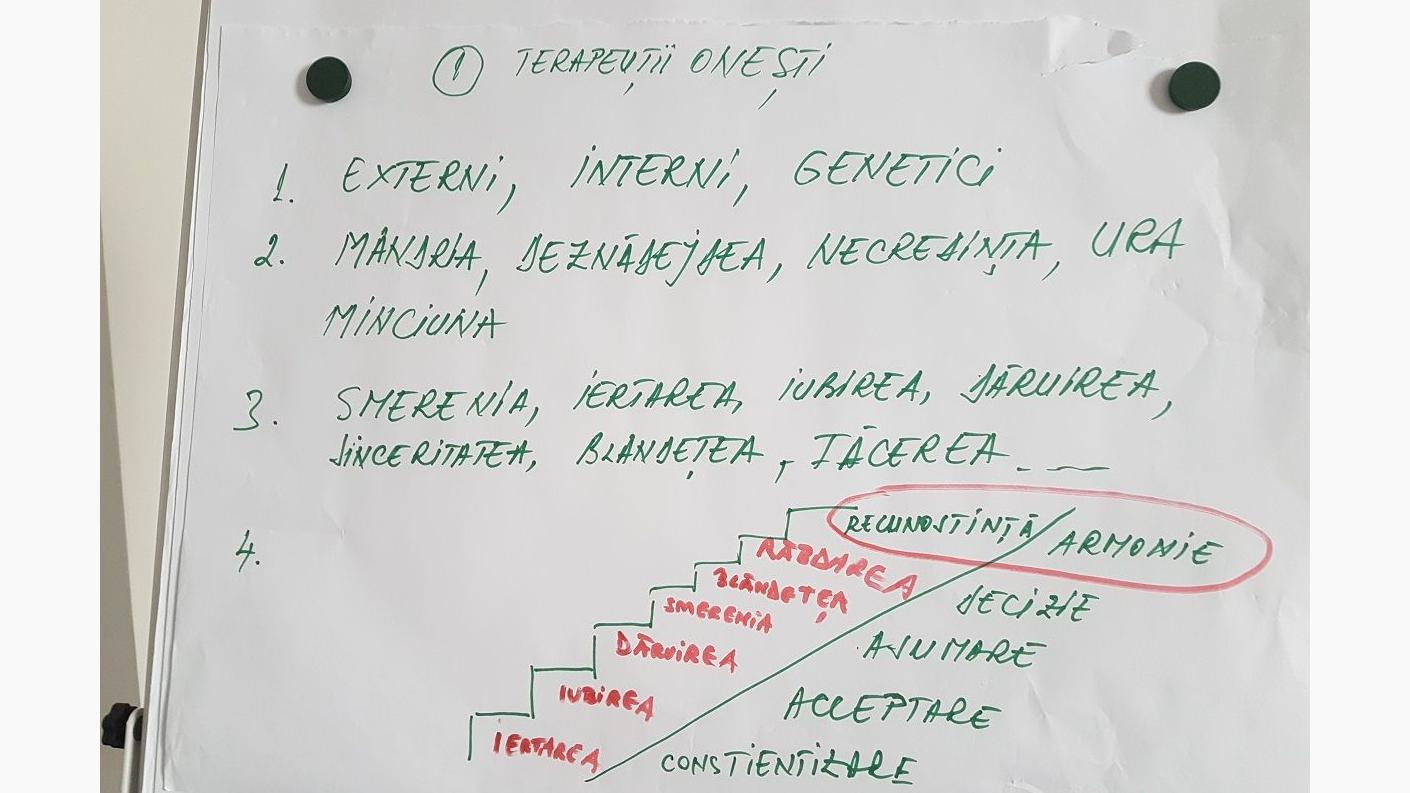 ① TERAPEUȚII ONEȘTI
1. EXTERNI, INTERNI, GENETICI
2. MÂNDRIA, DEZNĂDEJDEA, NECREDINȚA, URA
MINCIUNA
3. SMERENIA, IERTAREA, IUBIREA, DĂRUIREA,
SINCERITATEA, BLÂNDEȚEA, TĂCEREA
4.
RECUNOSTINȚĂ/ARMONIE
RĂBDAREA
BLÂNDEȚEA
DECIZIE
SMERENIA
DĂRUIREA
ASUMARE
IUBIREA
ACCEPTARE
IERTAREA
CONSTIENTIZARE